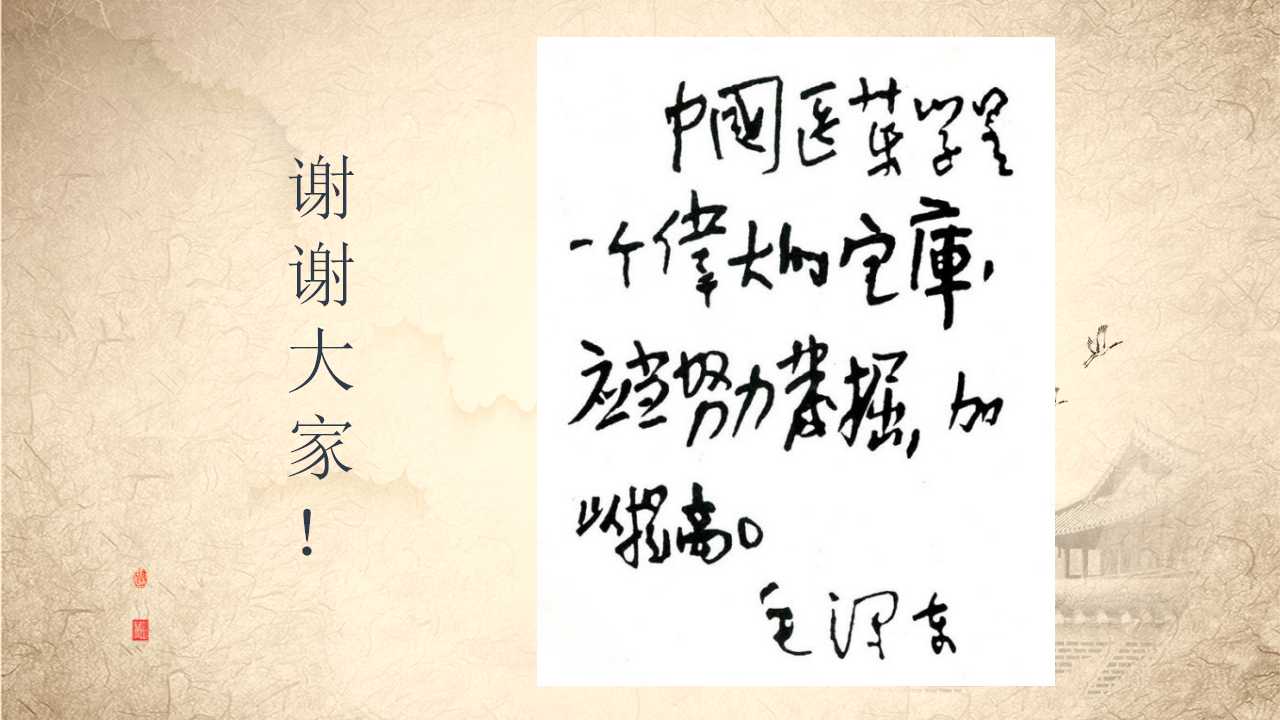 谢谢大家！
中國医药学是
一个偉大的宝庫，
应当努力发掘，加
以提高。
毛泽东